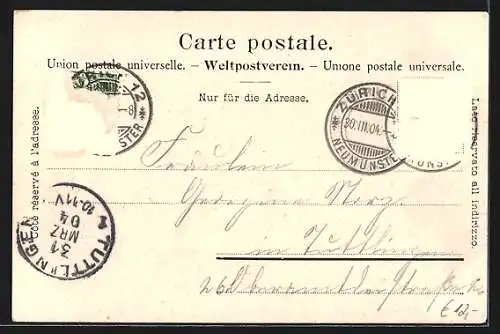 Carte postale.
Union postale universelle. – Weltpostverein. – Unione postale universale.
Nur für die Adresse.
Côté réservé à l'adresse.
Lato riservato all indirizzo.
12
ZÜRICH
30.III.04.
NEUMÜNSTER
Fräulein
Georgina
in Tuttlingen
26
TUTTLINGEN
31
MRZ
04
10-11V
€ 12,-